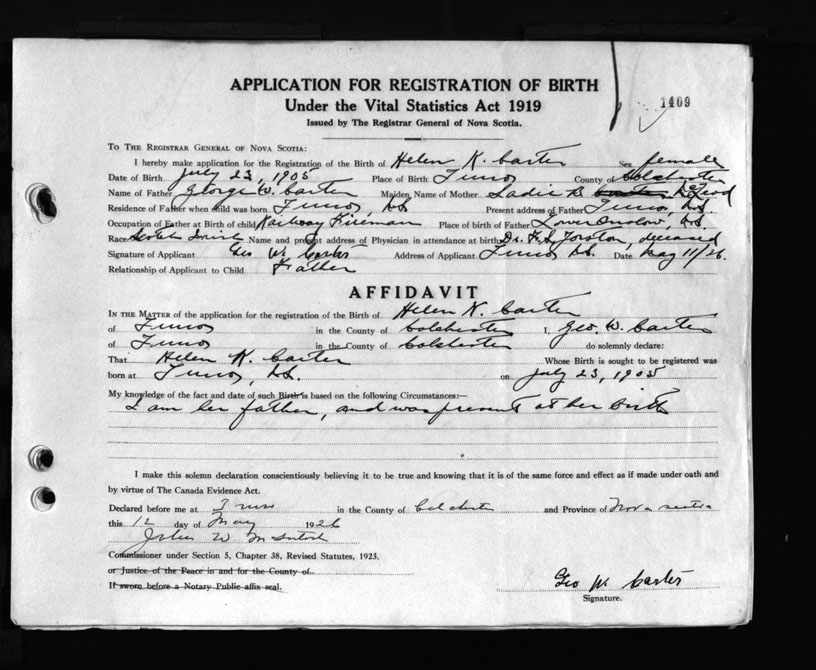 APPLICATION FOR REGISTRATION OF BIRTH
Under the Vital Statistics Act 1919
Issued by The Registrar General of Nova Scotia.
1409
TO THE REGISTRAR GENERAL OF NOVA SCOTIA:
I hereby make application for the Registration of the Birth of Helen K. Carter Sex female
Date of Birth July 23, 1905 Place of Birth Truro County of Colchester
Name of Father George W. Carter Maiden Name of Mother Sadie B.
Residence of Father when child was born Truro N.S. Present address of Father Truro, N.S.
Occupation of Father at Birth of child Railway Fireman Place of birth of Father Lower Onslow, N.S.
Race Scotch Irish Name and present address of Physician in attendance at birth Dr. deceased
Signature of Applicant Geo W. Carter Address of Applicant Truro N.S. Date May 11/26.
Relationship of Applicant to Child Father
AFFIDAVIT
IN THE MATTER of the application for the registration of the Birth of Helen K. Carter
of Truro in the County of Colchester I, Geo. W. Carter
of Truro in the County of Colchester do solemnly declare:
That Helen K. Carter Whose Birth is sought to be registered was
born at Truro, N.S. on July 23, 1905
My knowledge of the fact and date of such Birth is based on the following Circumstances:—
I am her father, and was present at her birth
I make this solemn declaration conscientiously believing it to be true and knowing that it is of the same force and effect as if made under oath and
by virtue of The Canada Evidence Act.
Declared before me at Truro in the County of Colchester and Province of Nova Scotia
this 12 day of May 1926
John W McIntosh
Commissioner under Section 5, Chapter 38, Revised Statutes, 1923.
or Justice of the Peace in and for the County of
If sworn before a Notary Public affix seal.
Geo W. Carter
Signature.